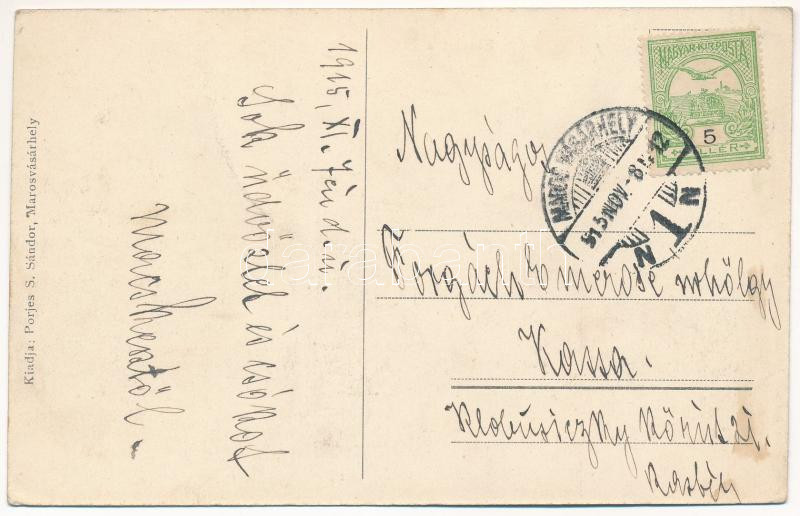 Kiadja: Porjes S. Sándor, Marosvásárhely
1915, XI. 7én d.u.
Sok üdvözlet és csókot
MAGYAR KIR. POSTA
5
FILLÉR
MAROSVÁSÁRHELY
915 NOV -8
N 1 N
Nagyságos
Forgách Emerose úrhölgy
Kassa.
Klobusiczky Körút 21.
darabanth